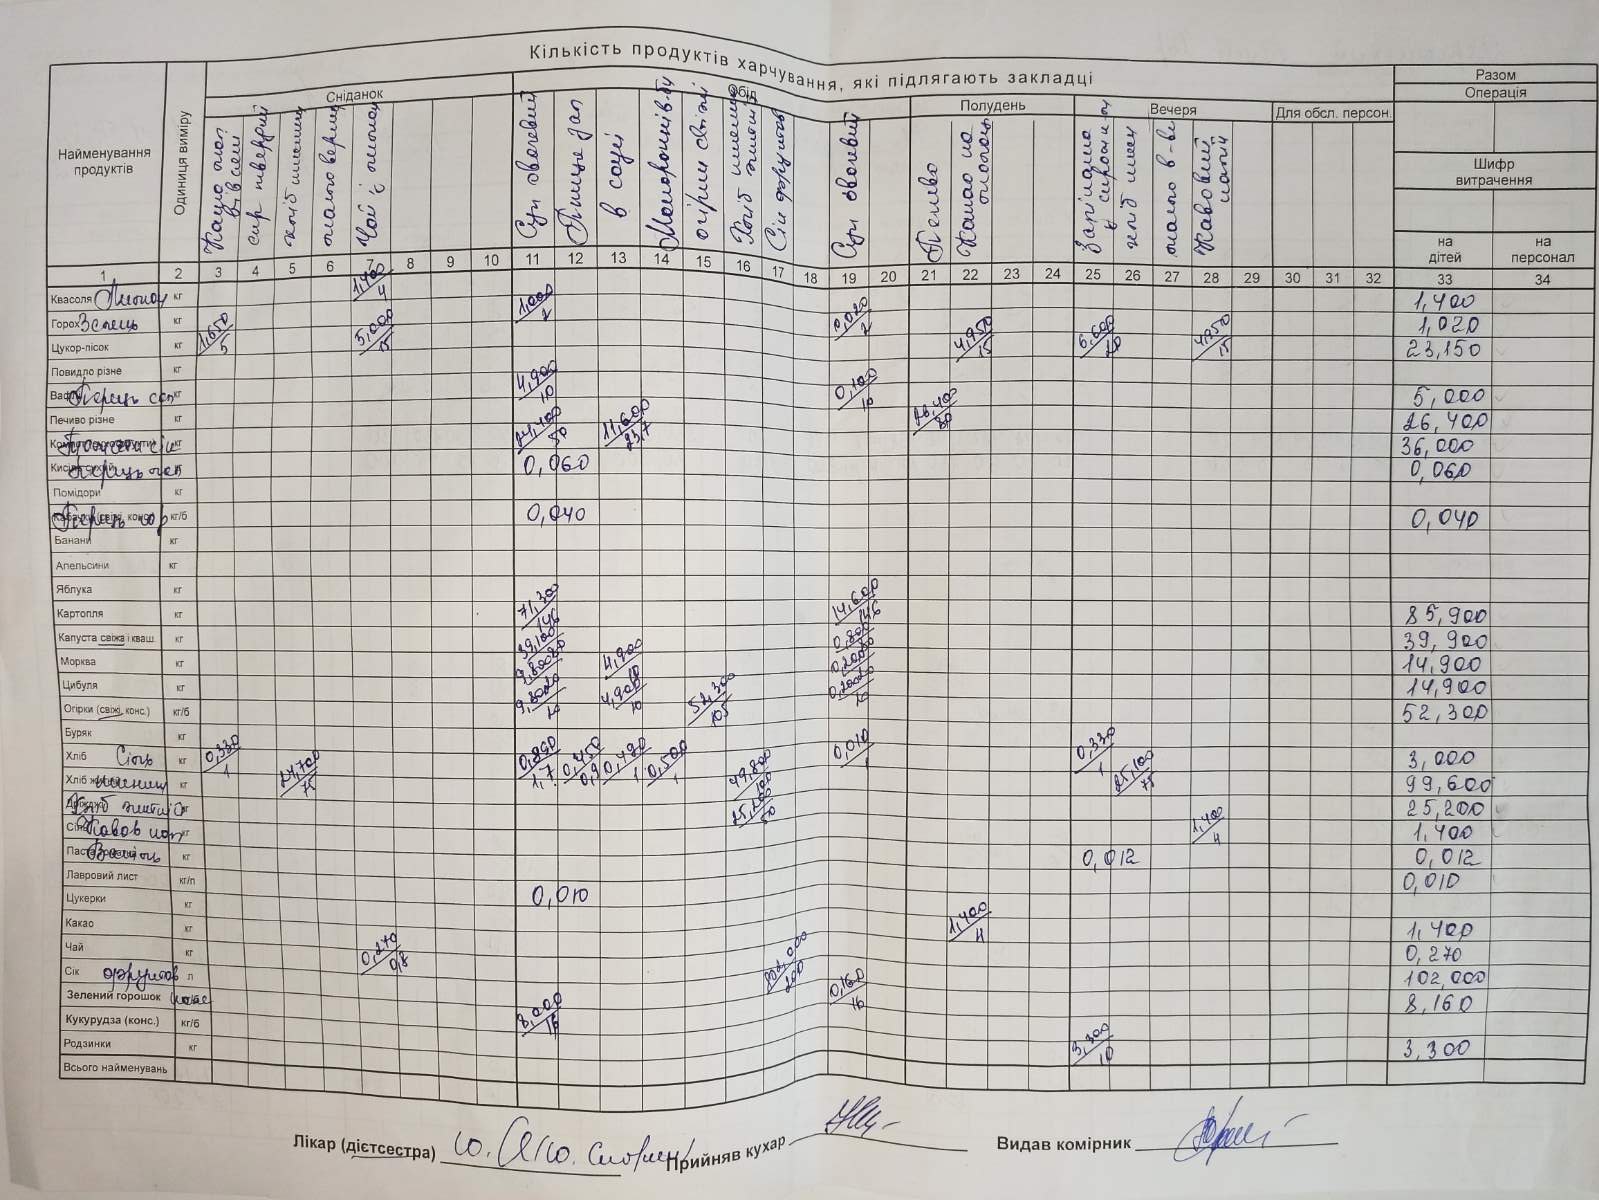 Кількість продуктів харчування, які підлягають закладці
Разом
Операція
Найменування продуктів
Одиниця виміру
Сніданок
Обід
Полудень
Вечеря
Для обсл. персон.
Шифр витрачення
на дітей
на персонал
сир твердий
Чай з лимоном
Суп овочевий
в соусі
огірки свіжі
Сік фруктов
Суп овочевий
Печиво
Какао на молоці
Запіканка
Кавовий напій
1 2 3 4 5 6 7 8 9 10 11 12 13 14 15 16 17 18 19 20 21 22 23 24 25 26 27 28 29 30 31 32 33 34
Квасоля Лимон кг 1,400/4 1,400
Горох Зелень кг 1,000/2 0,020/2 1,020
Цукор-пісок кг 1,650/5 5,000/15 4,950/15 6,600/20 4,950/15 23,150
Повидло різне кг
Перець сол кг 4,900/10 0,100/10 5,000
Печиво різне кг 26,400/80 26,400
кг 24,400/50 11,600/23,7 36,000
0,060 0,060
Помідори кг
Перець кг/б 0,040 0,040
Банани кг
Апельсини кг
Яблука кг
Картопля кг 71,300/146 14,600/146 85,900
Капуста свіжа і кваш. кг 39,100 0,800 39,900
Морква кг 9,800/20 4,900/10 0,200/20 14,900
Цибуля кг 9,800/20 4,900/10 0,200/20 14,900
Огірки (свіжі, конс.) кг/б 52,300/105 52,300
Буряк кг
Хліб Сіль кг 0,330/1 0,890/1,7 0,450/0,9 0,490/1 0,500/1 0,010/1 0,330/1 3,000
Хліб кг 24,700/75 49,800/100 25,100/75 99,600
Хліб житній 25,200/50 25,200
Кавов нап кг 1,400/4 1,400
Ваніль кг 0,012 0,012
Лавровий лист кг/п 0,010
Цукерки кг 0,010
Какао кг 1,400/4 1,400
Чай кг 0,270/0,8 0,270
Сік фруктов л 102,000/200 102,000
Зелений горошок 8,000/16 0,160/16 8,160
Кукурудза (конс.) кг/б
Родзинки кг 3,300/10 3,300
Всього найменувань
Лікар (дієтсестра)
Прийняв кухар
Видав комірник